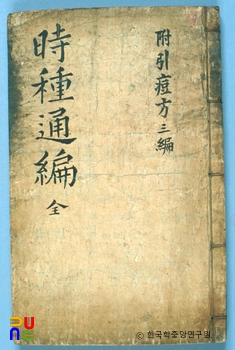 附引痘方三編
時種通編 全
PUN
© 한국학중앙연구원